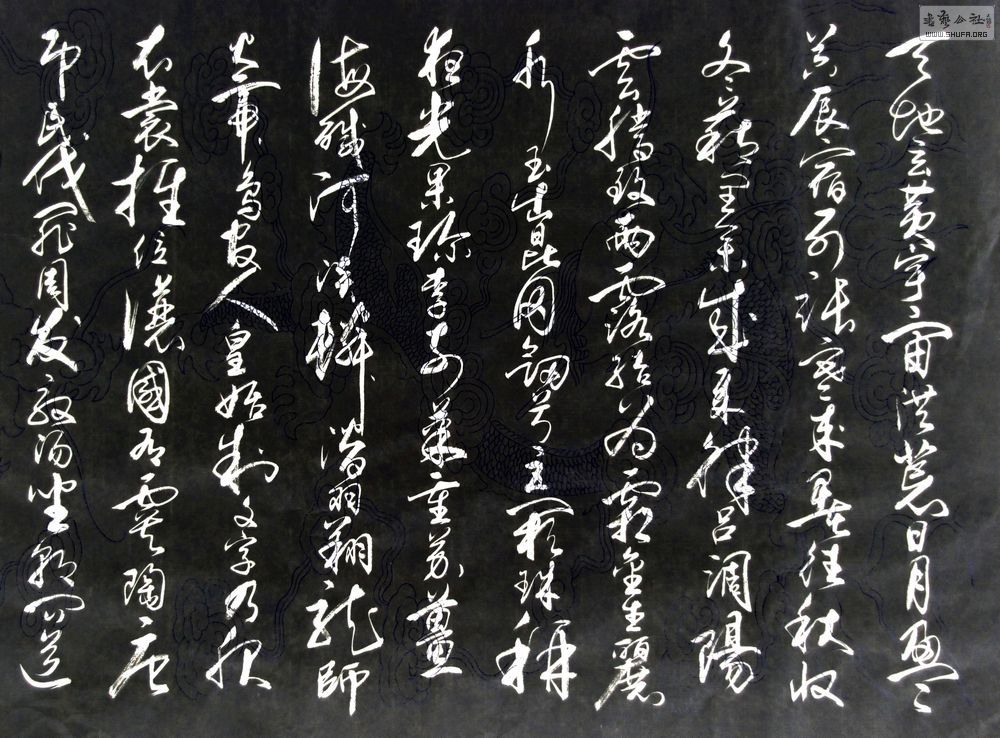 天地玄黄宇宙洪荒日月盈
昃辰宿列張寒来暑往秋收
冬藏閏余成歲律吕調陽
雲騰致雨露結为霜金生麗
水玉出崑岡劍号巨闕珠稱
夜光果珍李柰菜重芥薑
海鹹河淡鱗潛羽翔龍師
火帝鳥官人皇始制文字乃服
衣裳推位讓國有虞陶唐
吊民伐罪周发殷湯坐朝问道
書藝公社
WWW.SHUFA.ORG